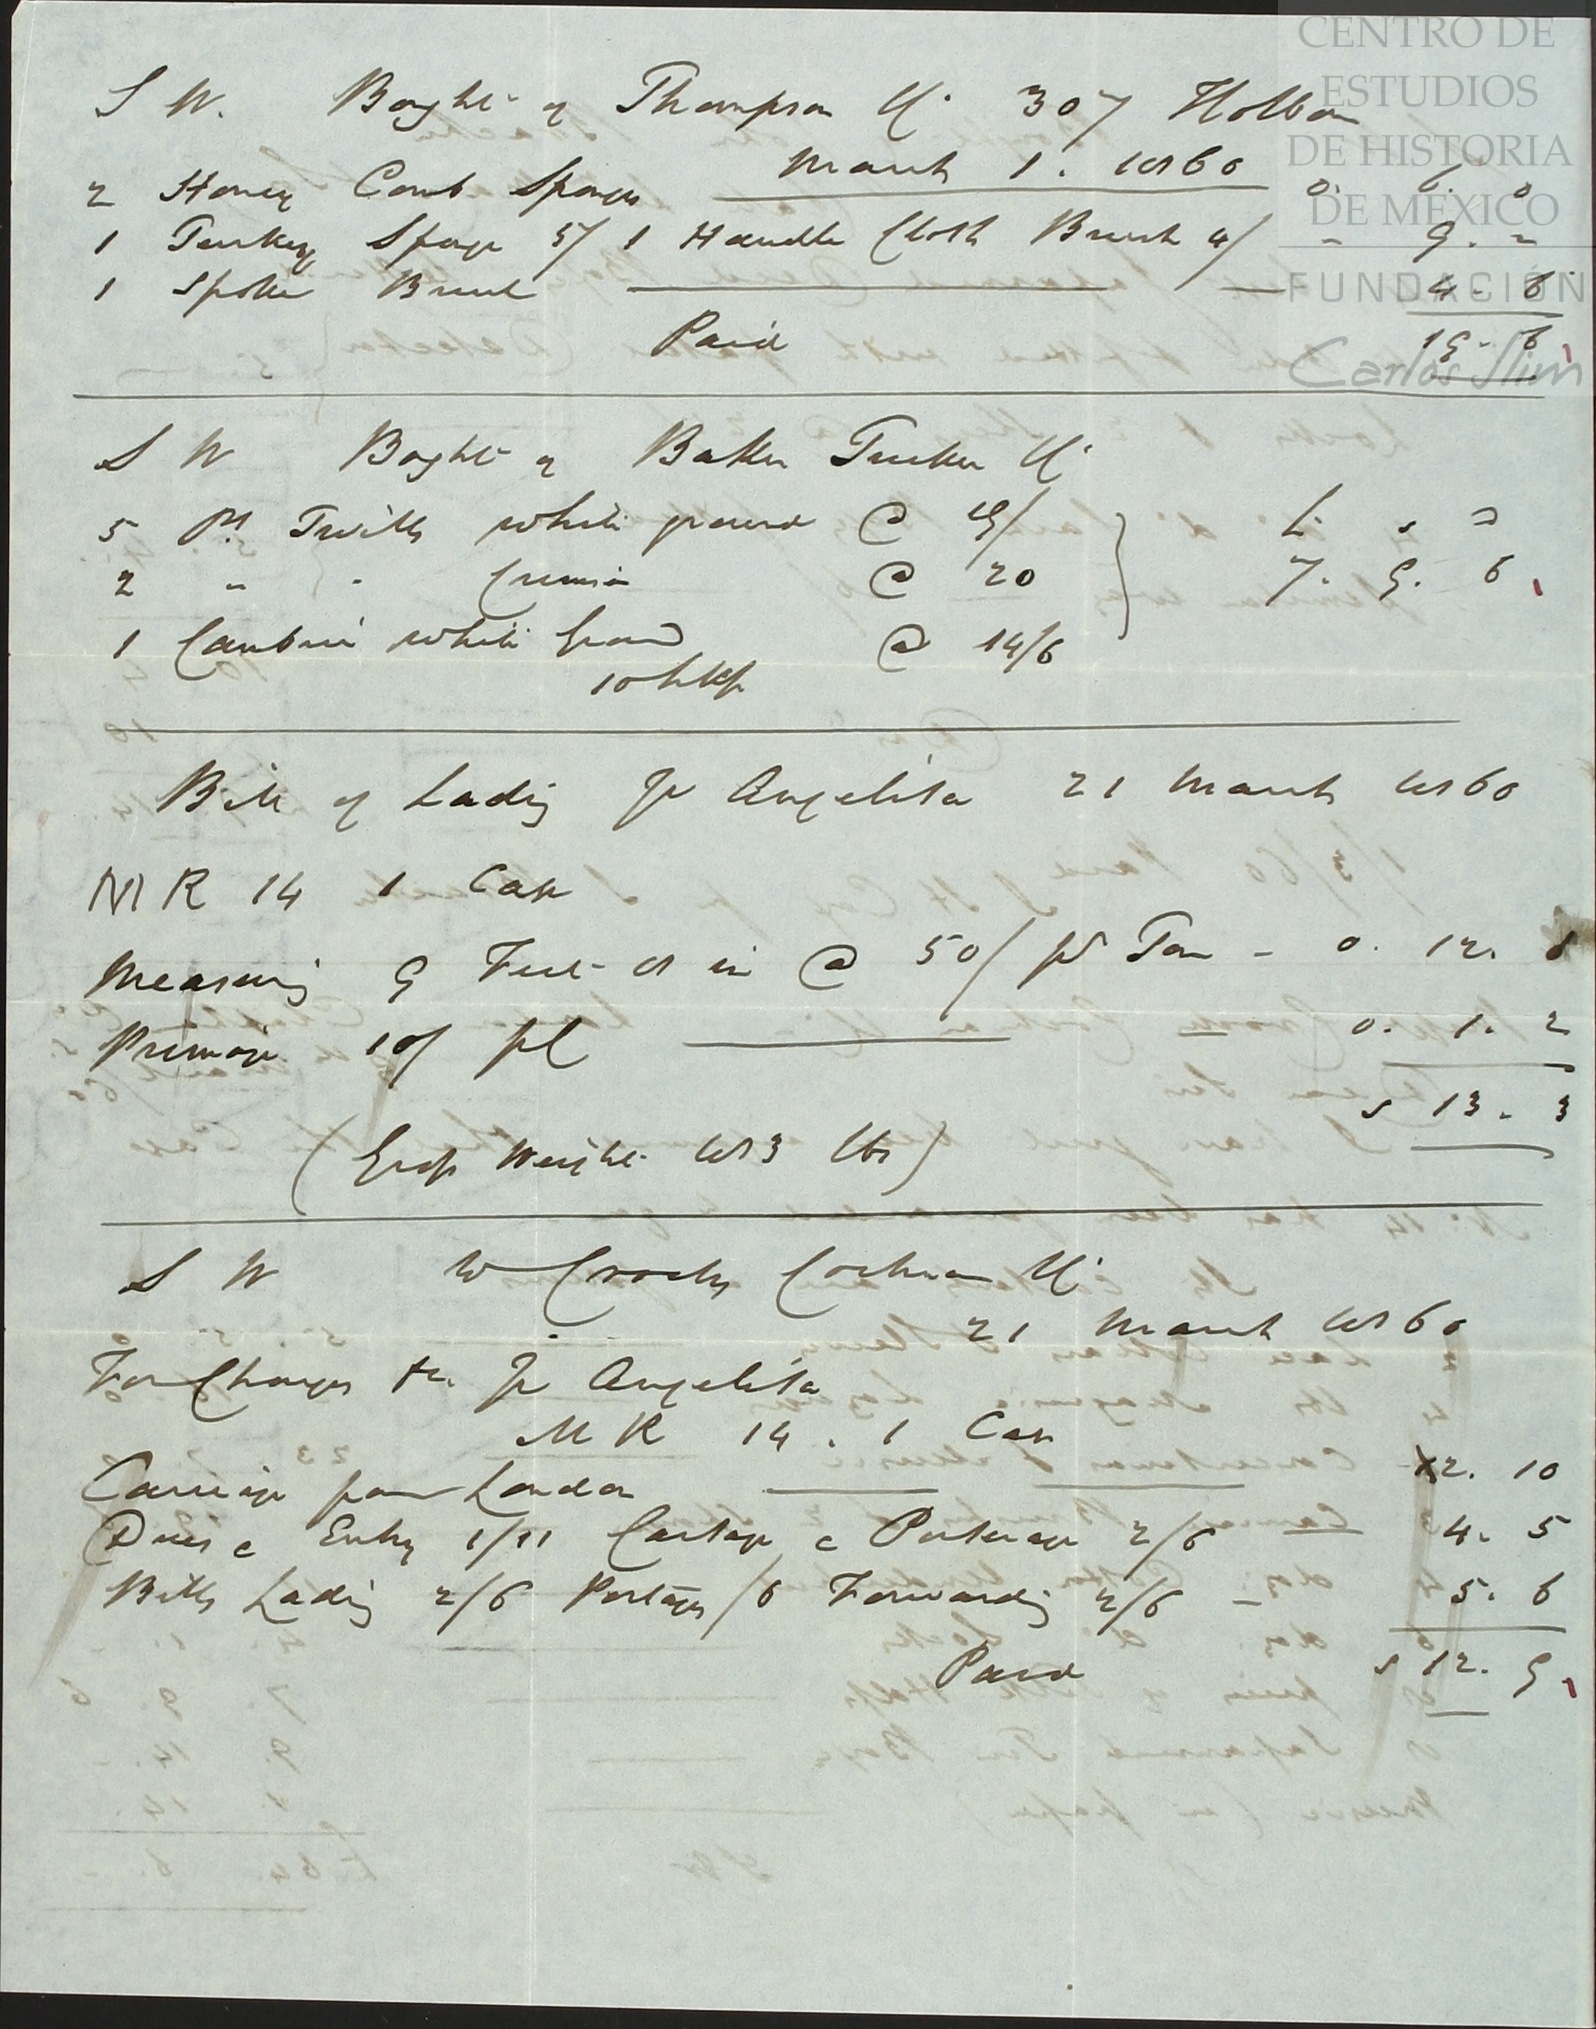 CENTRO DE
ESTUDIOS
DE HISTORIA
DE MÉXICO
FUNDACIÓN
Carlos Slim
S W. Boght of Thompson Co. 307 Holborn
March 1. 1860
2 Honey Comb Sponges 0. 6. 0
1 Turkey Sponge 5/ 1 Handle Cloth Brush 4/ - 9. -
1 Spoke Brush 4. 6
Paid 19. 6
S W Boght of Baker Tucker Co.
5 Ps Twills white ground @ 19/ £ s D
2 " " Crimson @ 20 7. 9. 6
1 Cambric white Ground @ 14/6
10 hkfs
Bill of Lading Pr Angelita 21 March 1860
MR 14 1 Case
Measuring 9 Feet 8 in @ 50/ pr Ton - 0. 12. 1
Primage 10/ pC 0. 1. 2
s 13. 3
(Gross Weight 183 lbs)
S W To Crooks Cochran Co.
21 March 1860
For Charges &c. Pr Angelita
MR 14. 1 Case
Carriage from London 2. 10
Dues & Entry 1/11 Cartage & Porterage 2/6 4. 5
Bills Lading 2/6 Postages /6 Forwarding 2/6 - 5. 6
Paid s 12. 9